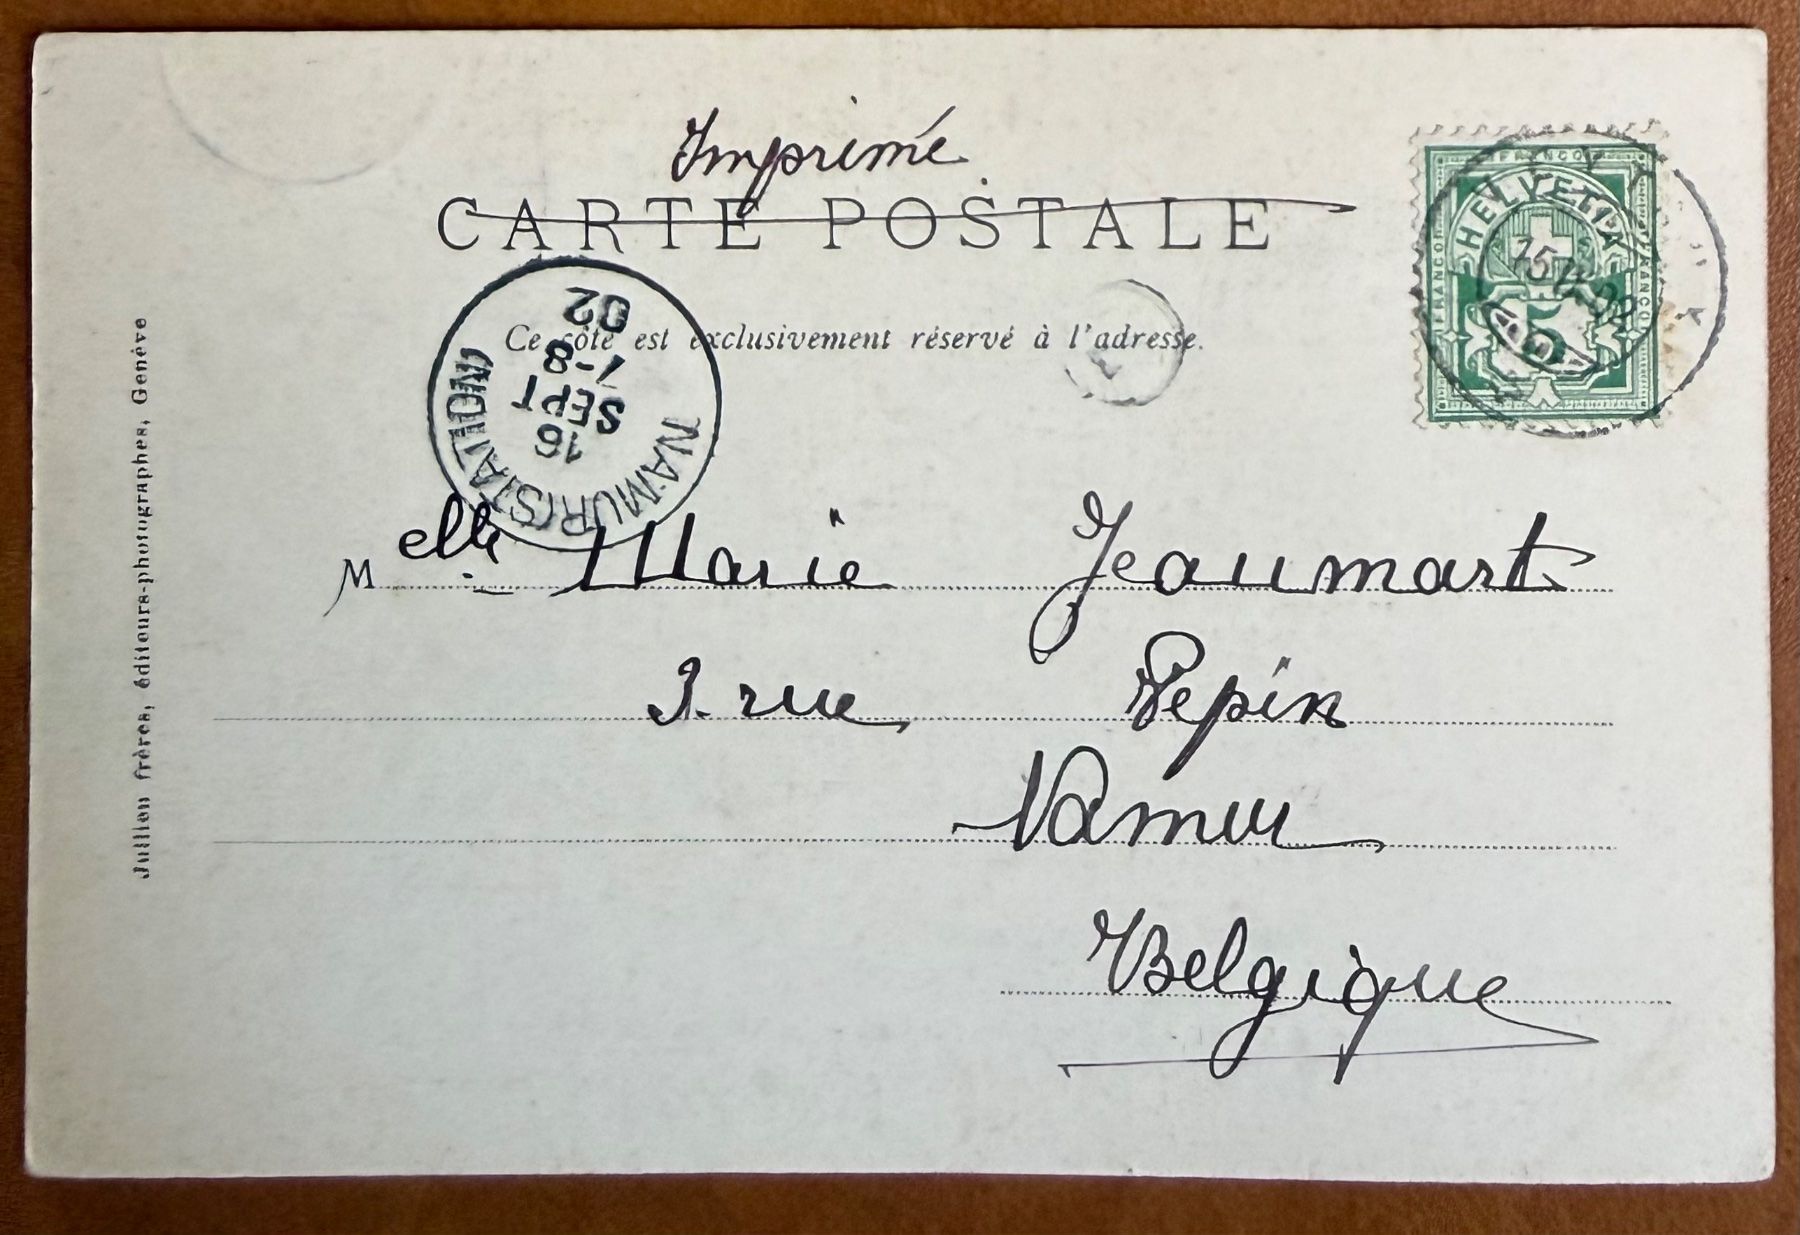 Imprimé
CARTE POSTALE
Ce côté est exclusivement réservé à l'adresse.
FRANCO
HELVETIA
FRANCO
FRANCO
5
NAMUR (STATION)
16
SEPT
7-8
02
Melle. Marie Jeaumart
3. rue Pepin
Namur
Belgique
Jullien frères, éditeurs-photographes, Genève